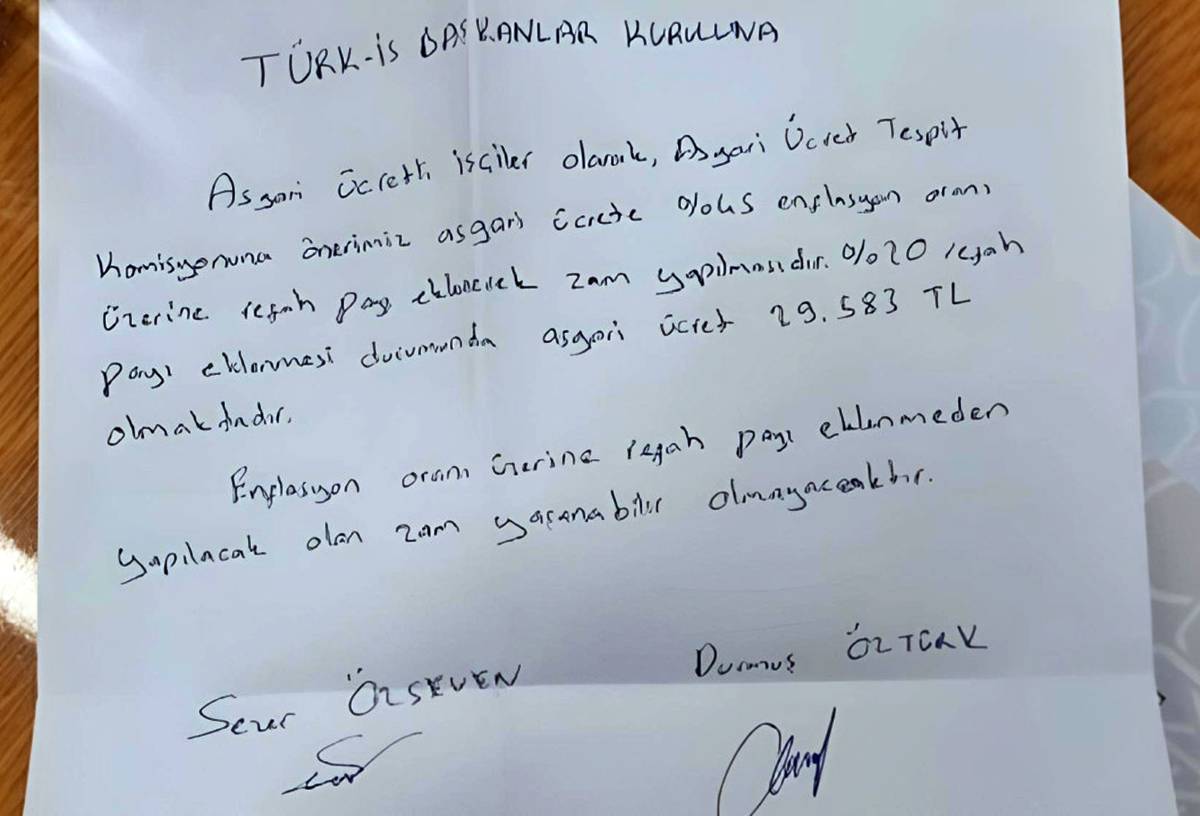 TÜRK-İS BAŞKANLAR KURULUNA
Asgari Ücretli işçiler olarak, Asgari Ücret Tespit
Komisyonuna önerimiz asgari ücrete %45 enflasyon oranı
üzerine refah payı eklenecek zam yapılmasıdır. %20 refah
payı eklenmesi durumunda asgari ücret 29.583 TL
olmaktadır.
Enflasyon oranı üzerine refah payı eklenmeden
yapılacak olan zam yaşanabilir olmayacaktır.
Sezer ÖZSEVEN
Durmuş ÖZTÜRK